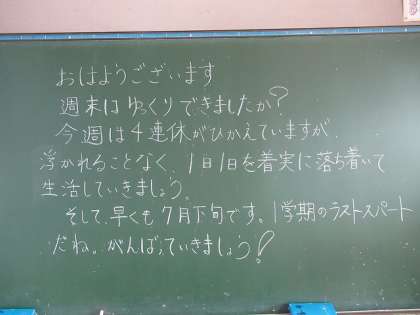 おはようございます
週末はゆっくりできましたか?
今週は4連休がひかえていますが、
浮かれることなく、1日1日を着実に落ち着いて
生活していきましょう。
そして、早くも7月下旬です。1学期のラストスパート
だね。がんばっていきましょう!